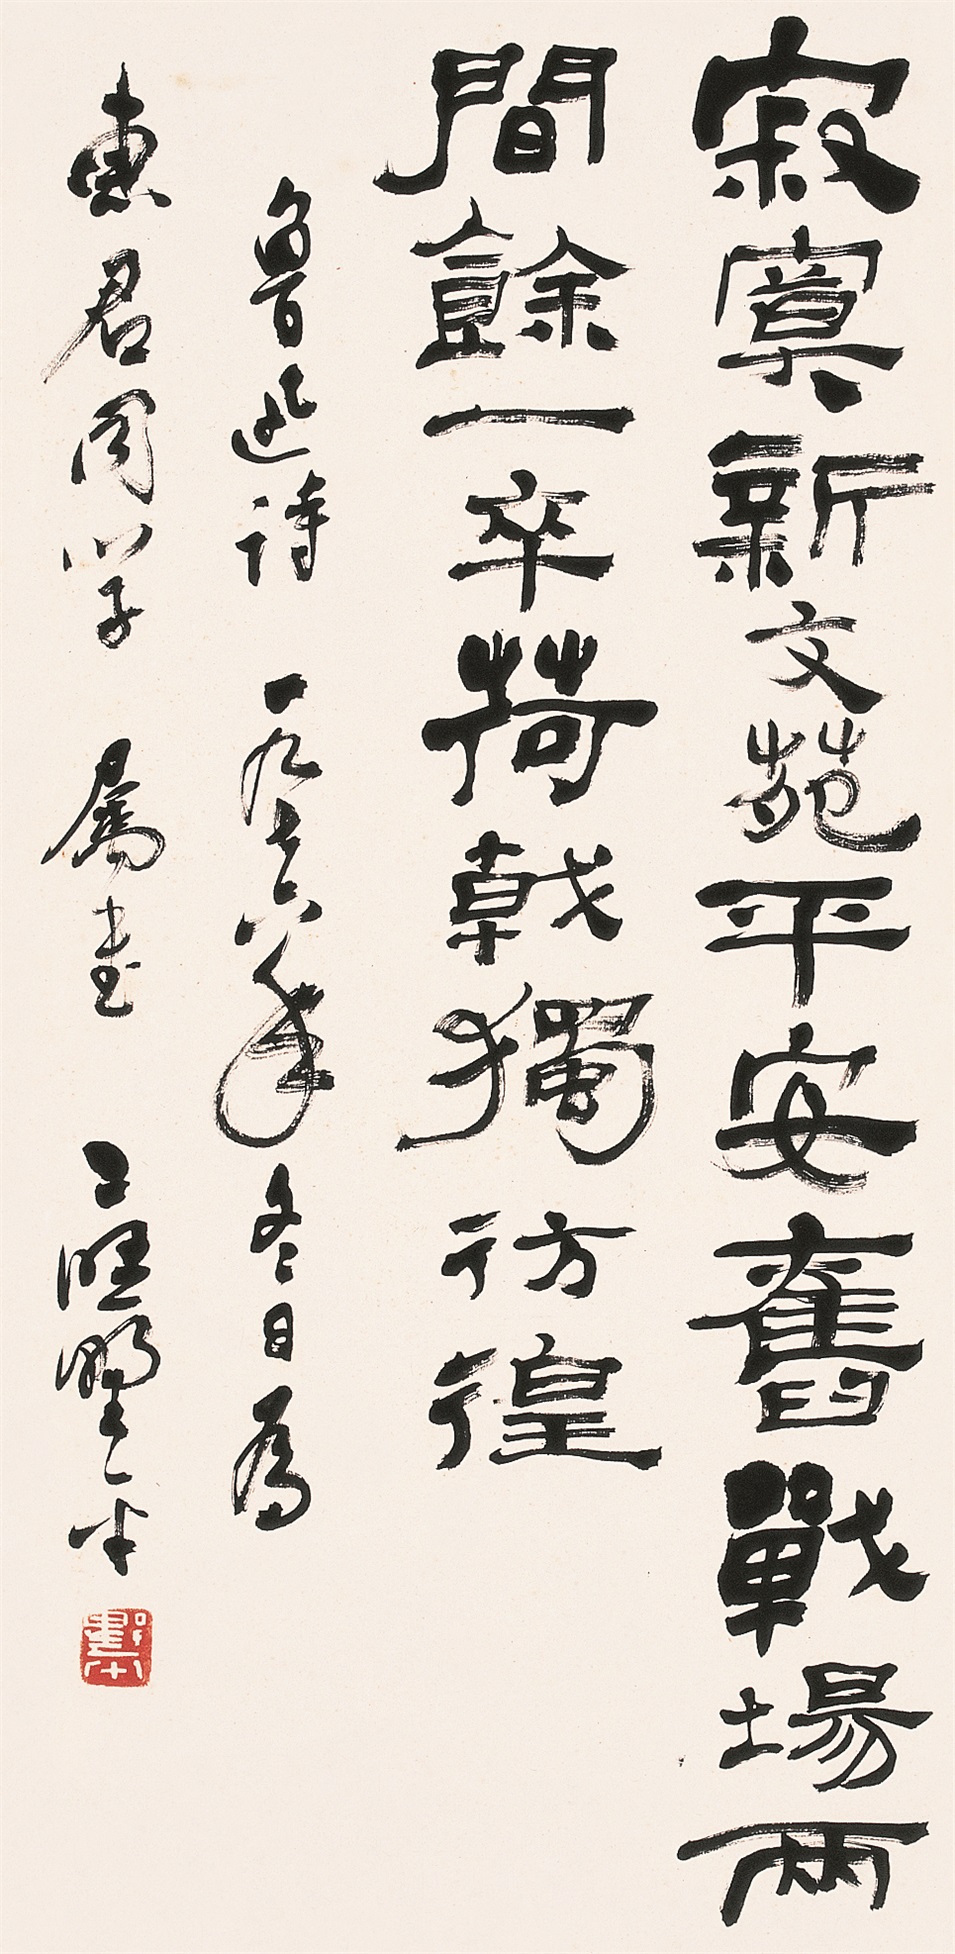 寂寞新文苑平安舊戰場兩
間餘一卒荷戟獨彷徨
魯迅詩 一九七六年冬日為
惠君同學 屬書